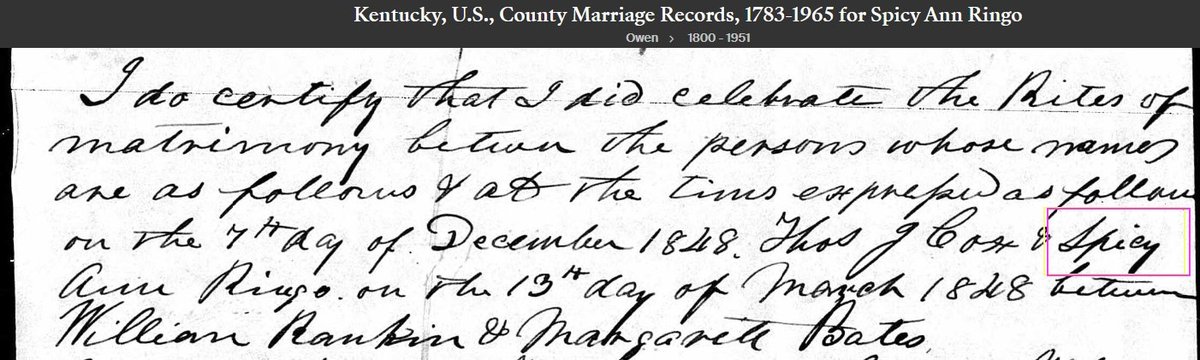 Kentucky, U.S., County Marriage Records, 1783-1965 for Spicy Ann Ringo
Owen > 1800 - 1951
I do certify that I did celebrate the Rites of
matrimony betwen the persons whose names
are as follows & at the tims expressed as follow
on the 7th day of December 1848. Thos J Cox & Spicy
Ann Ringo. on the 13th day of March 1848 betwen
William Rankin & Margarett Bates.